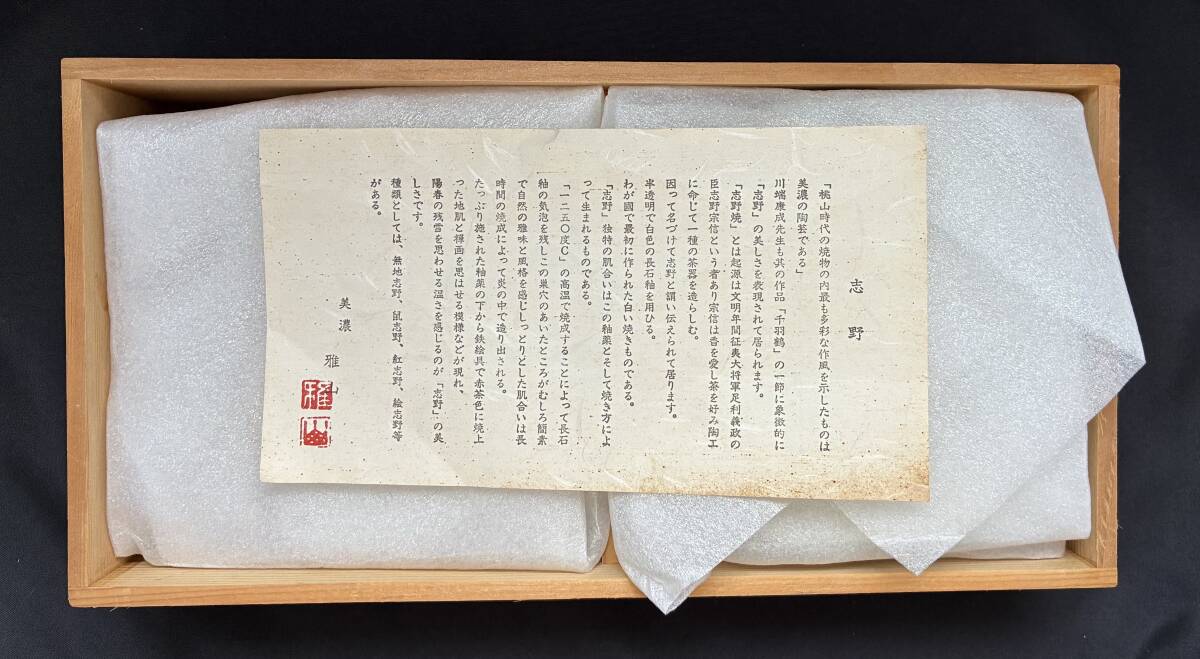 志野
「桃山時代の焼物の内最も多彩な作風を示したものは
美濃の陶芸である」
川端康成先生も其の作品「千羽鶴」の一節に象徴的に
「志野」の美しさを表現されて居られます。
「志野焼」とは起源は文明年間征夷大将軍足利義政の
臣志野宗信という者あり宗信は香を愛し茶を好み陶工
に命じて一種の茶器を造らしむ。
因って名づけて志野と謂い伝えられて居ります。
半透明で白色の長石釉を用ひる。
わが國で最初に作られた白い焼きものである。
「志野」独特の肌合いはこの釉薬とそして焼き方によ
って生まれるものである。
「一二五〇度C」の高温で焼成することによって長石
釉の気泡を残しこの巣穴のあいたところがむしろ簡素
で自然の雅味と風格を感じしっとりとした肌合いは長
時間の焼成によって炎の中で造り出される。
たっぷり施された釉薬の下から鉄絵具で赤茶色に焼上
った地肌と禅画を思はせる模様などが現れ、
陽春の残雪を思わせる温さを感じるのが「志野」の美
しさです。
種類としては、無地志野、鼠志野、紅志野、絵志野等
がある。
美濃 雅山